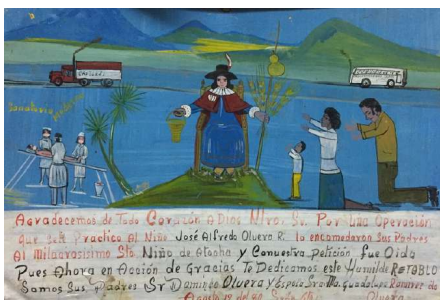 Agradecemos de Todo Corazón A Dios Ntro. Sr. Por Una Operación
que se le Practico Al Niño José Alfredo Olvera R. lo encomendaron Sus Padres
Al Milagrosisimo Sto. Niño de Atocha y Conuestra Petición fue Oida
Pues Ahora en Acción de Gracias Te Dedicamos este Humilde RETABLO
Somos Sus Padres Sr Domingo Olvera y Esposa Sra Ma. Guadalupe Ramirez de
Olvera